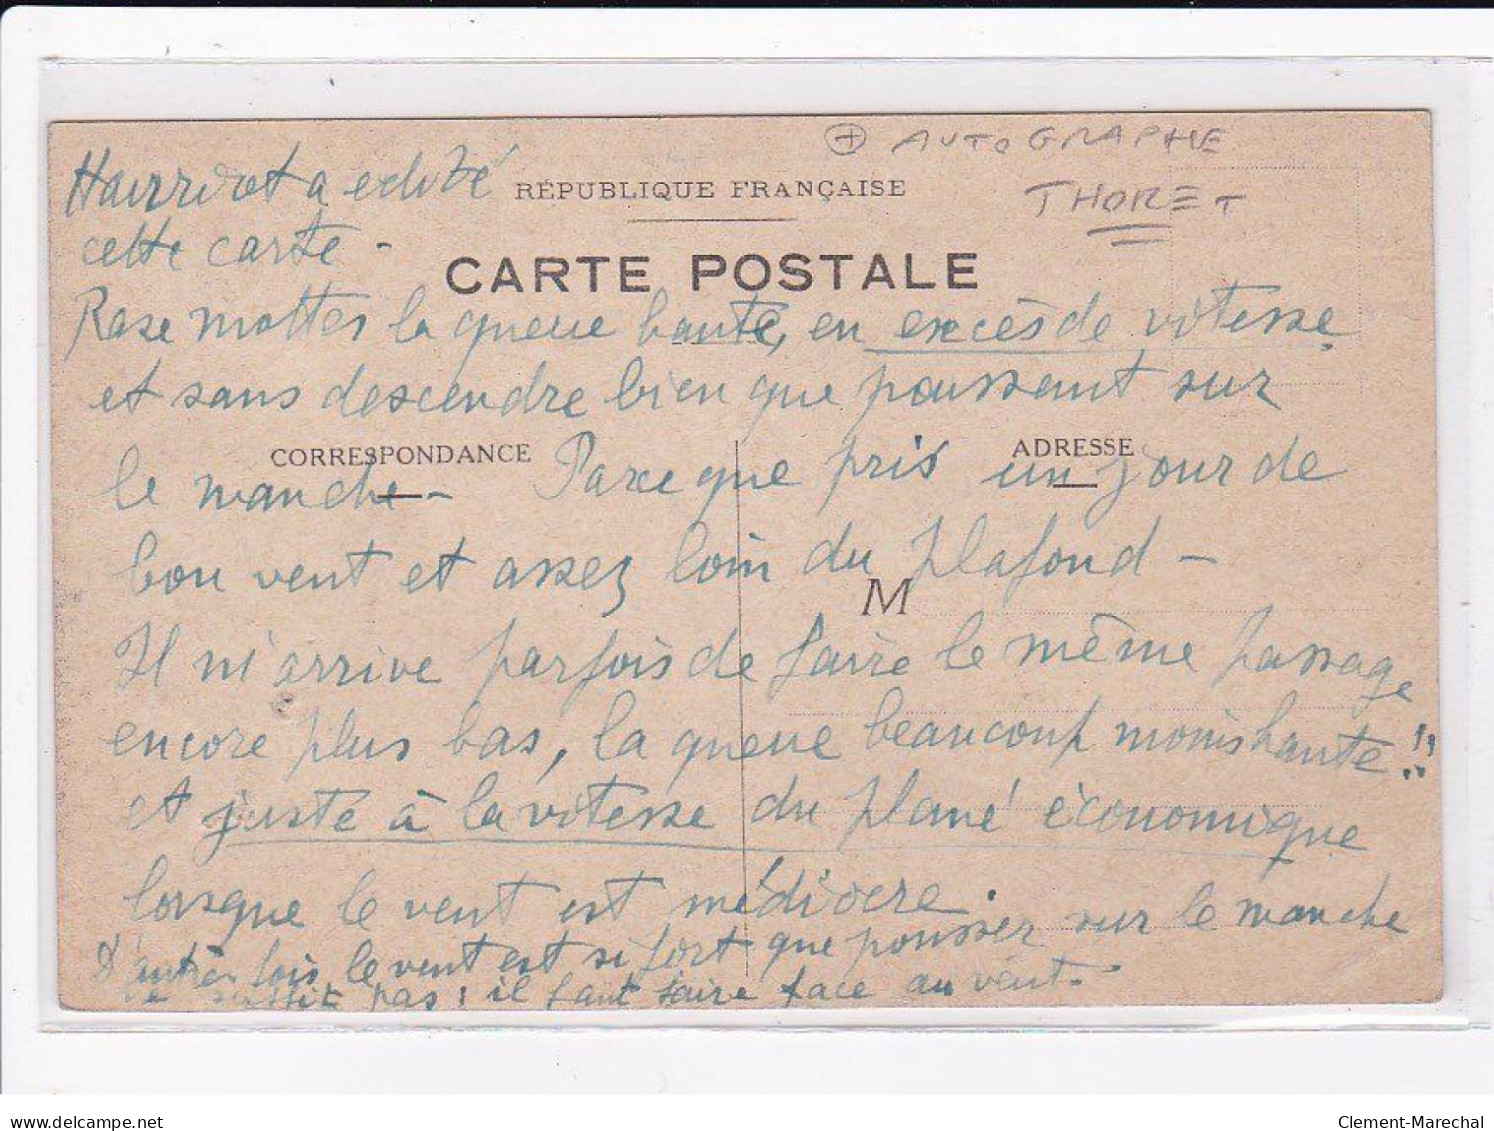 + AUTOGRAPHE
THORET
RÉPUBLIQUE FRANÇAISE
CARTE POSTALE
CORRESPONDANCE
ADRESSE
M
a edité
cette carte -
Rase mottes la queue haute, en excès de vitesse
et sans descendre bien que poussant sur
le manche - Parce que pris un jour de
bon vent et assez loin du plafond -
Il m'arrive parfois de faire le même passage
encore plus bas, la queue beaucoup moins haute!!
et juste à la vitesse du plané économique
lorsque le vent est médiocre.
D'autres fois le vent est si fort que pousser sur le manche
ne suffit pas : il faut faire face au vent -
delcampe.net
Clement-Marechal